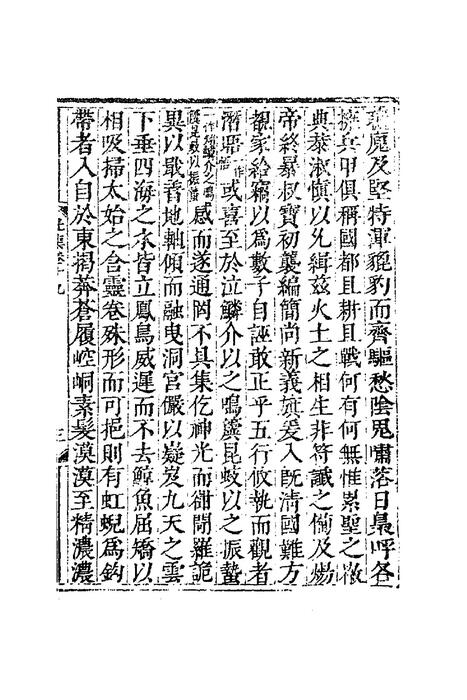 魔及堅特渾貔豹而齊驅愁陰鬼嘯落日梟呼各
擁兵甲俱稱國都且耕且戰何有何無惟累聖之徽
典恭淑慎以允緝茲火土之相生非符讖之備及煬
帝終暴叔寶初襲編簡尚新義旗爰入既清國難方
覩家給竊以為數子自誣敢正乎五行攸執而觀者
潛晤或喜至於泣鱗介以之鳴簴昆蚑以之振蟄
感而遂通罔不具集仡神光而閜羅詭
異以戢孴地軸傾而融曳洞宮儼以嶷岌九天之雲
下垂四海之水皆立鳳鳥威遲而不去鯨魚屈矯以
相吸掃太始之含靈卷殊形而可挹則有虹蜺為鉤
帶者入自於東揭莽蒼履崆峒素髮漠漠至精濃濃